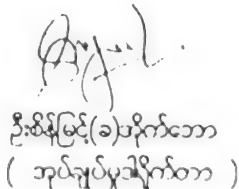 ဦးစိန်မြင့်(ခ)အိုက်ဘော
( အုပ်ချုပ်မှုဒါရိုက်တာ )